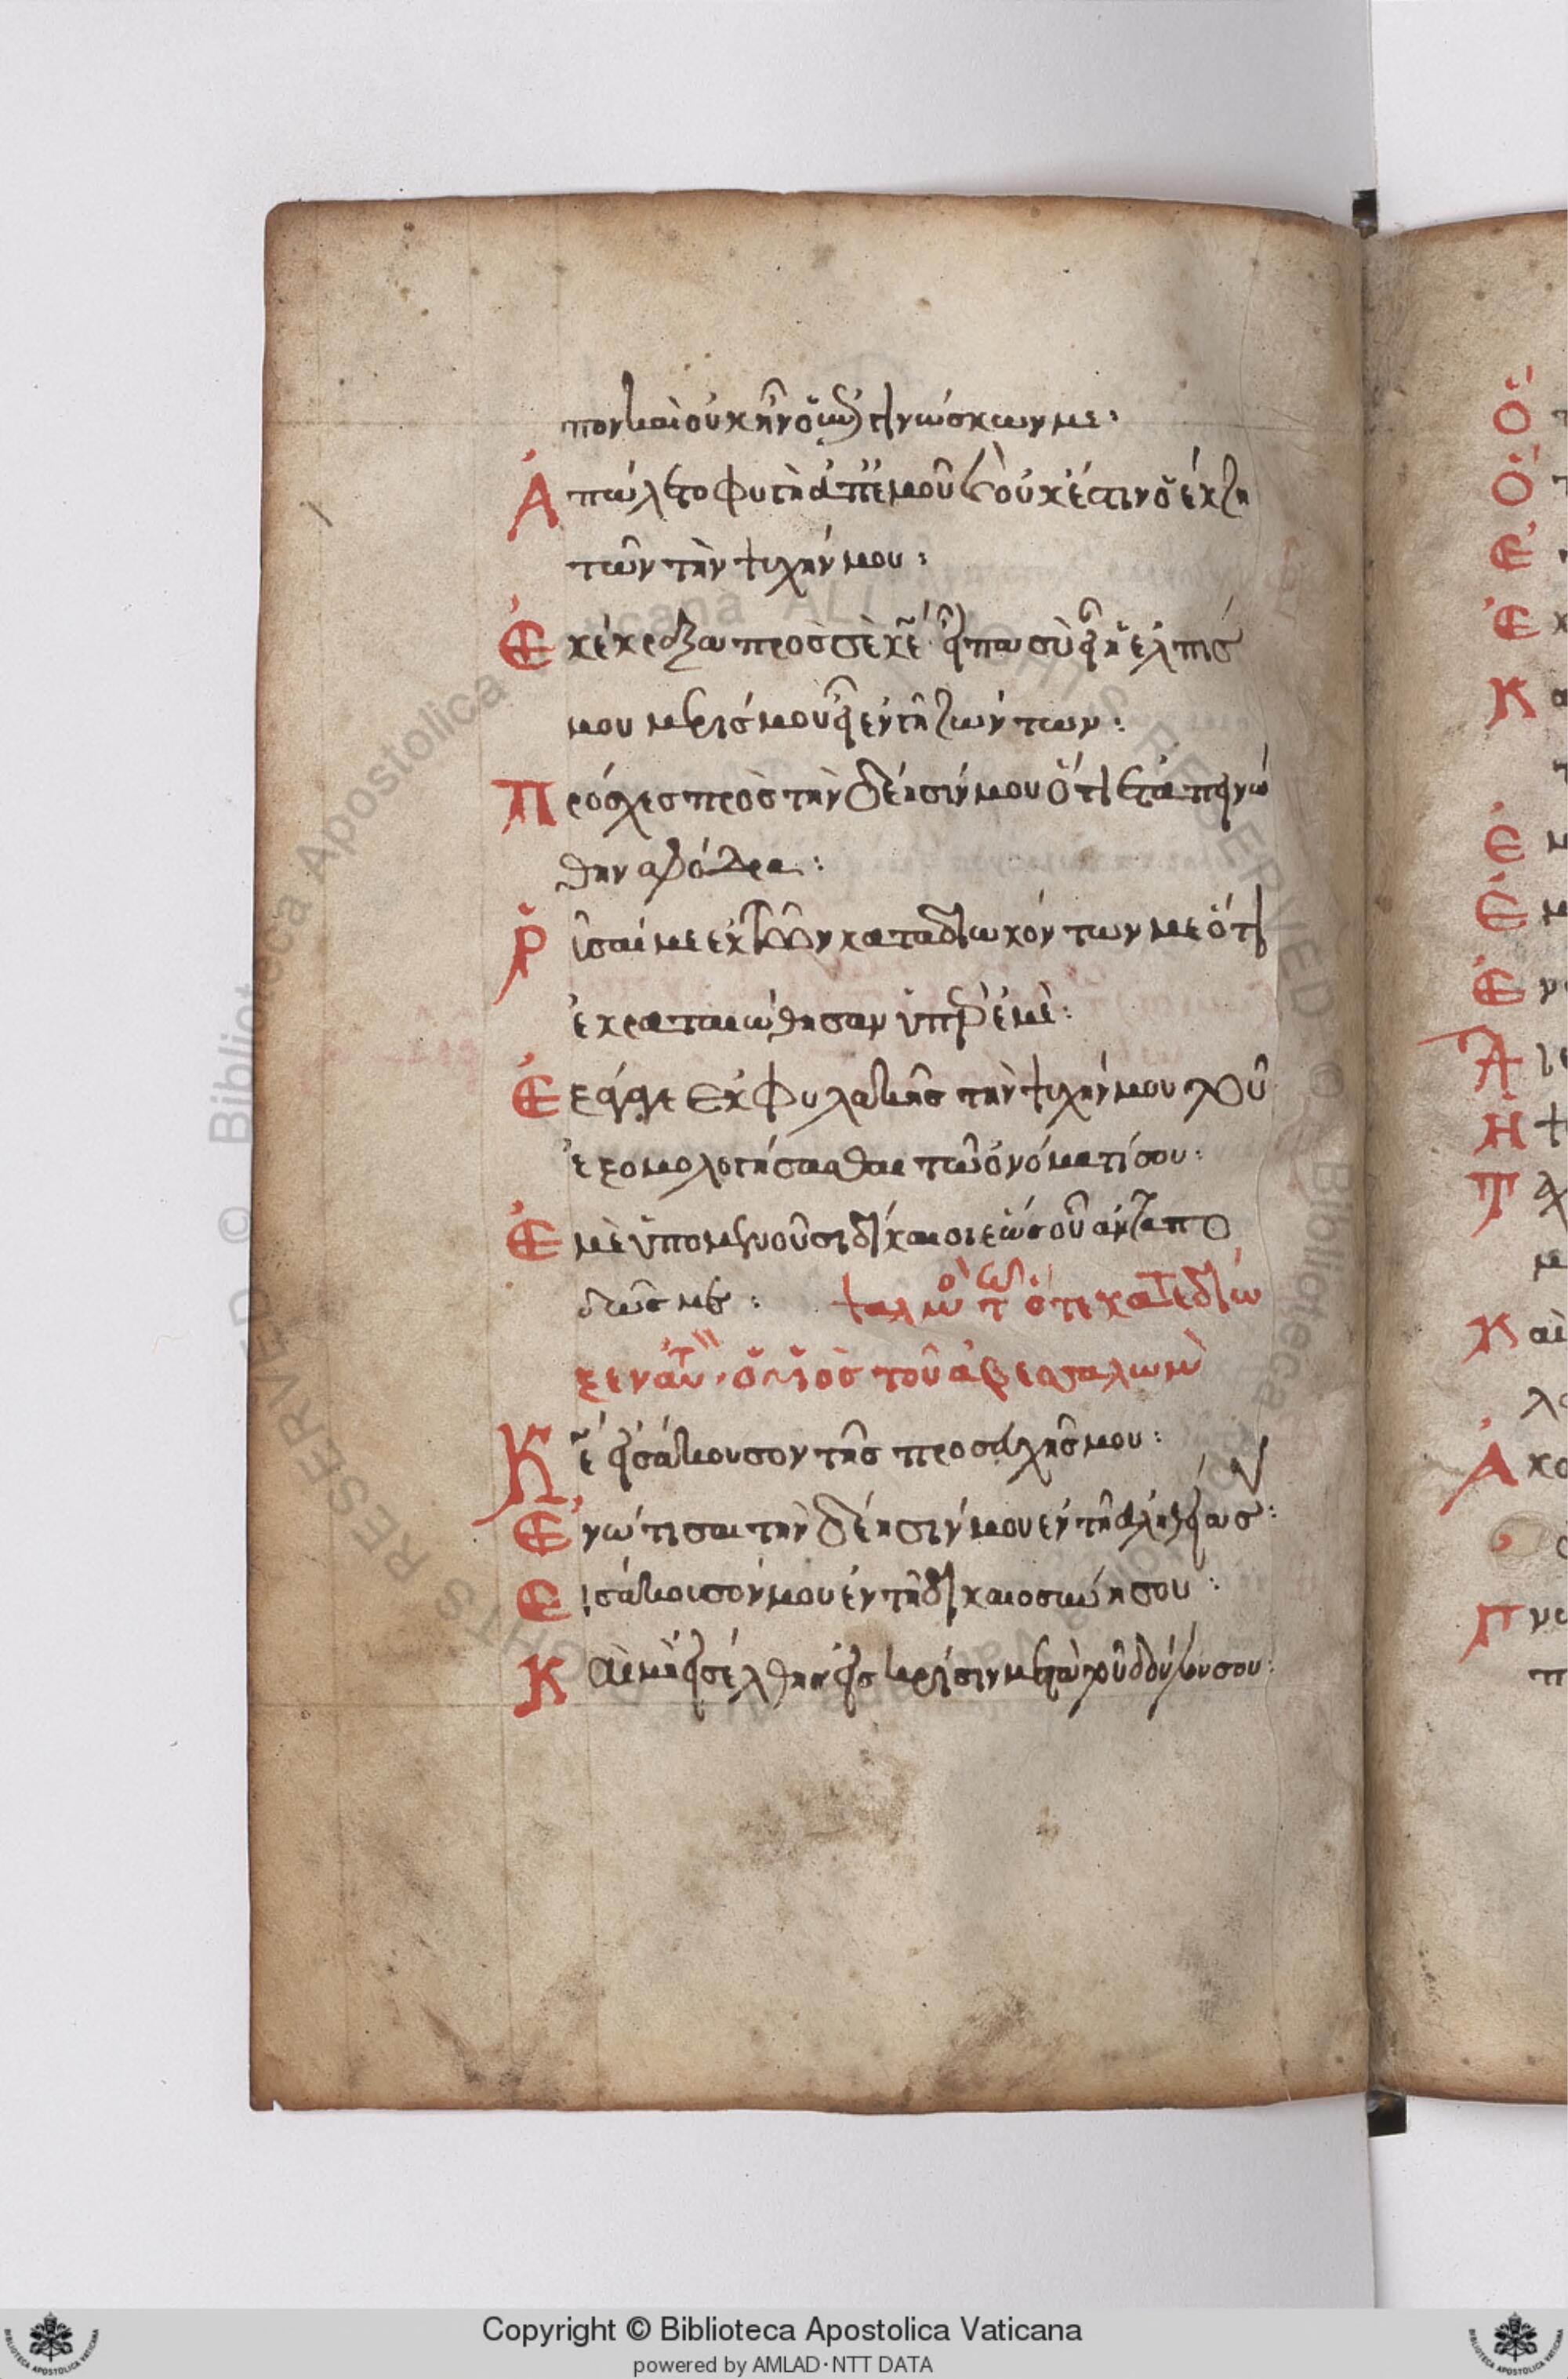 πουν καὶ οὐκ ἦν ὁ ἐπιγινώσκων με:
Ἀπώλετο φυγὴ ἀπ' ἐμοῦ καὶ οὐκ ἔστιν ὁ ἐκζη
τῶν τὴν ψυχήν μου:
Ἐκέκραξα πρὸς σὲ κε εἶπα σὺ εἶ ἡ ἐλπίς
μου μερίς μου εἶ ἐν γῆ ζώντων:
Πρόσχες πρὸς τὴν δέησίν μου ὅτι ἐταπεινώ
θην σφόδρα:
Ῥῦσαί με ἐκ τῶν καταδιωκόντων με ὅτι
ἐκραταιώθησαν ὑπὲρ ἐμὲ:
Ἐξάγαγε ἐκ φυλακῆς τὴν ψυχήν μου τοῦ
ἐξομολογήσασθαι τῶ ὀνόματί σου:
Ἐμὲ ὑπομενοῦσι δίκαιοι ἕως οὗ ἀνταπο
δῶς με: ψαλμὸς τῶ ὅτε κατεδίω
ξεν αὐτὸν ὁ υἱὸς τοῦ ἀβεσσαλωμ
Κε εἰσάκουσον τῆς προσευχῆς μου:
Ἐνώτισαι τὴν δέησίν μου ἐν τῆ ἀληθεία σου:
Εἰσάκουσόν μου ἐν τῆ δικαιοσύνη σου:
Καὶ μὴ εἰσέλθης εἰς κρίσιν μετὰ τοῦ δούλου σου:
Ὁ
Ὁ
Ἐ
Ἐ κ
Κ α
Ἐ μ
Ἐ μ
Ἐ ν
Ἀ
Η
Τ
μ
Καὶ
λο
Ἀκο
Πνε
π
Copyright © Biblioteca Apostolica Vaticana
powered by AMLAD·NTT DATA